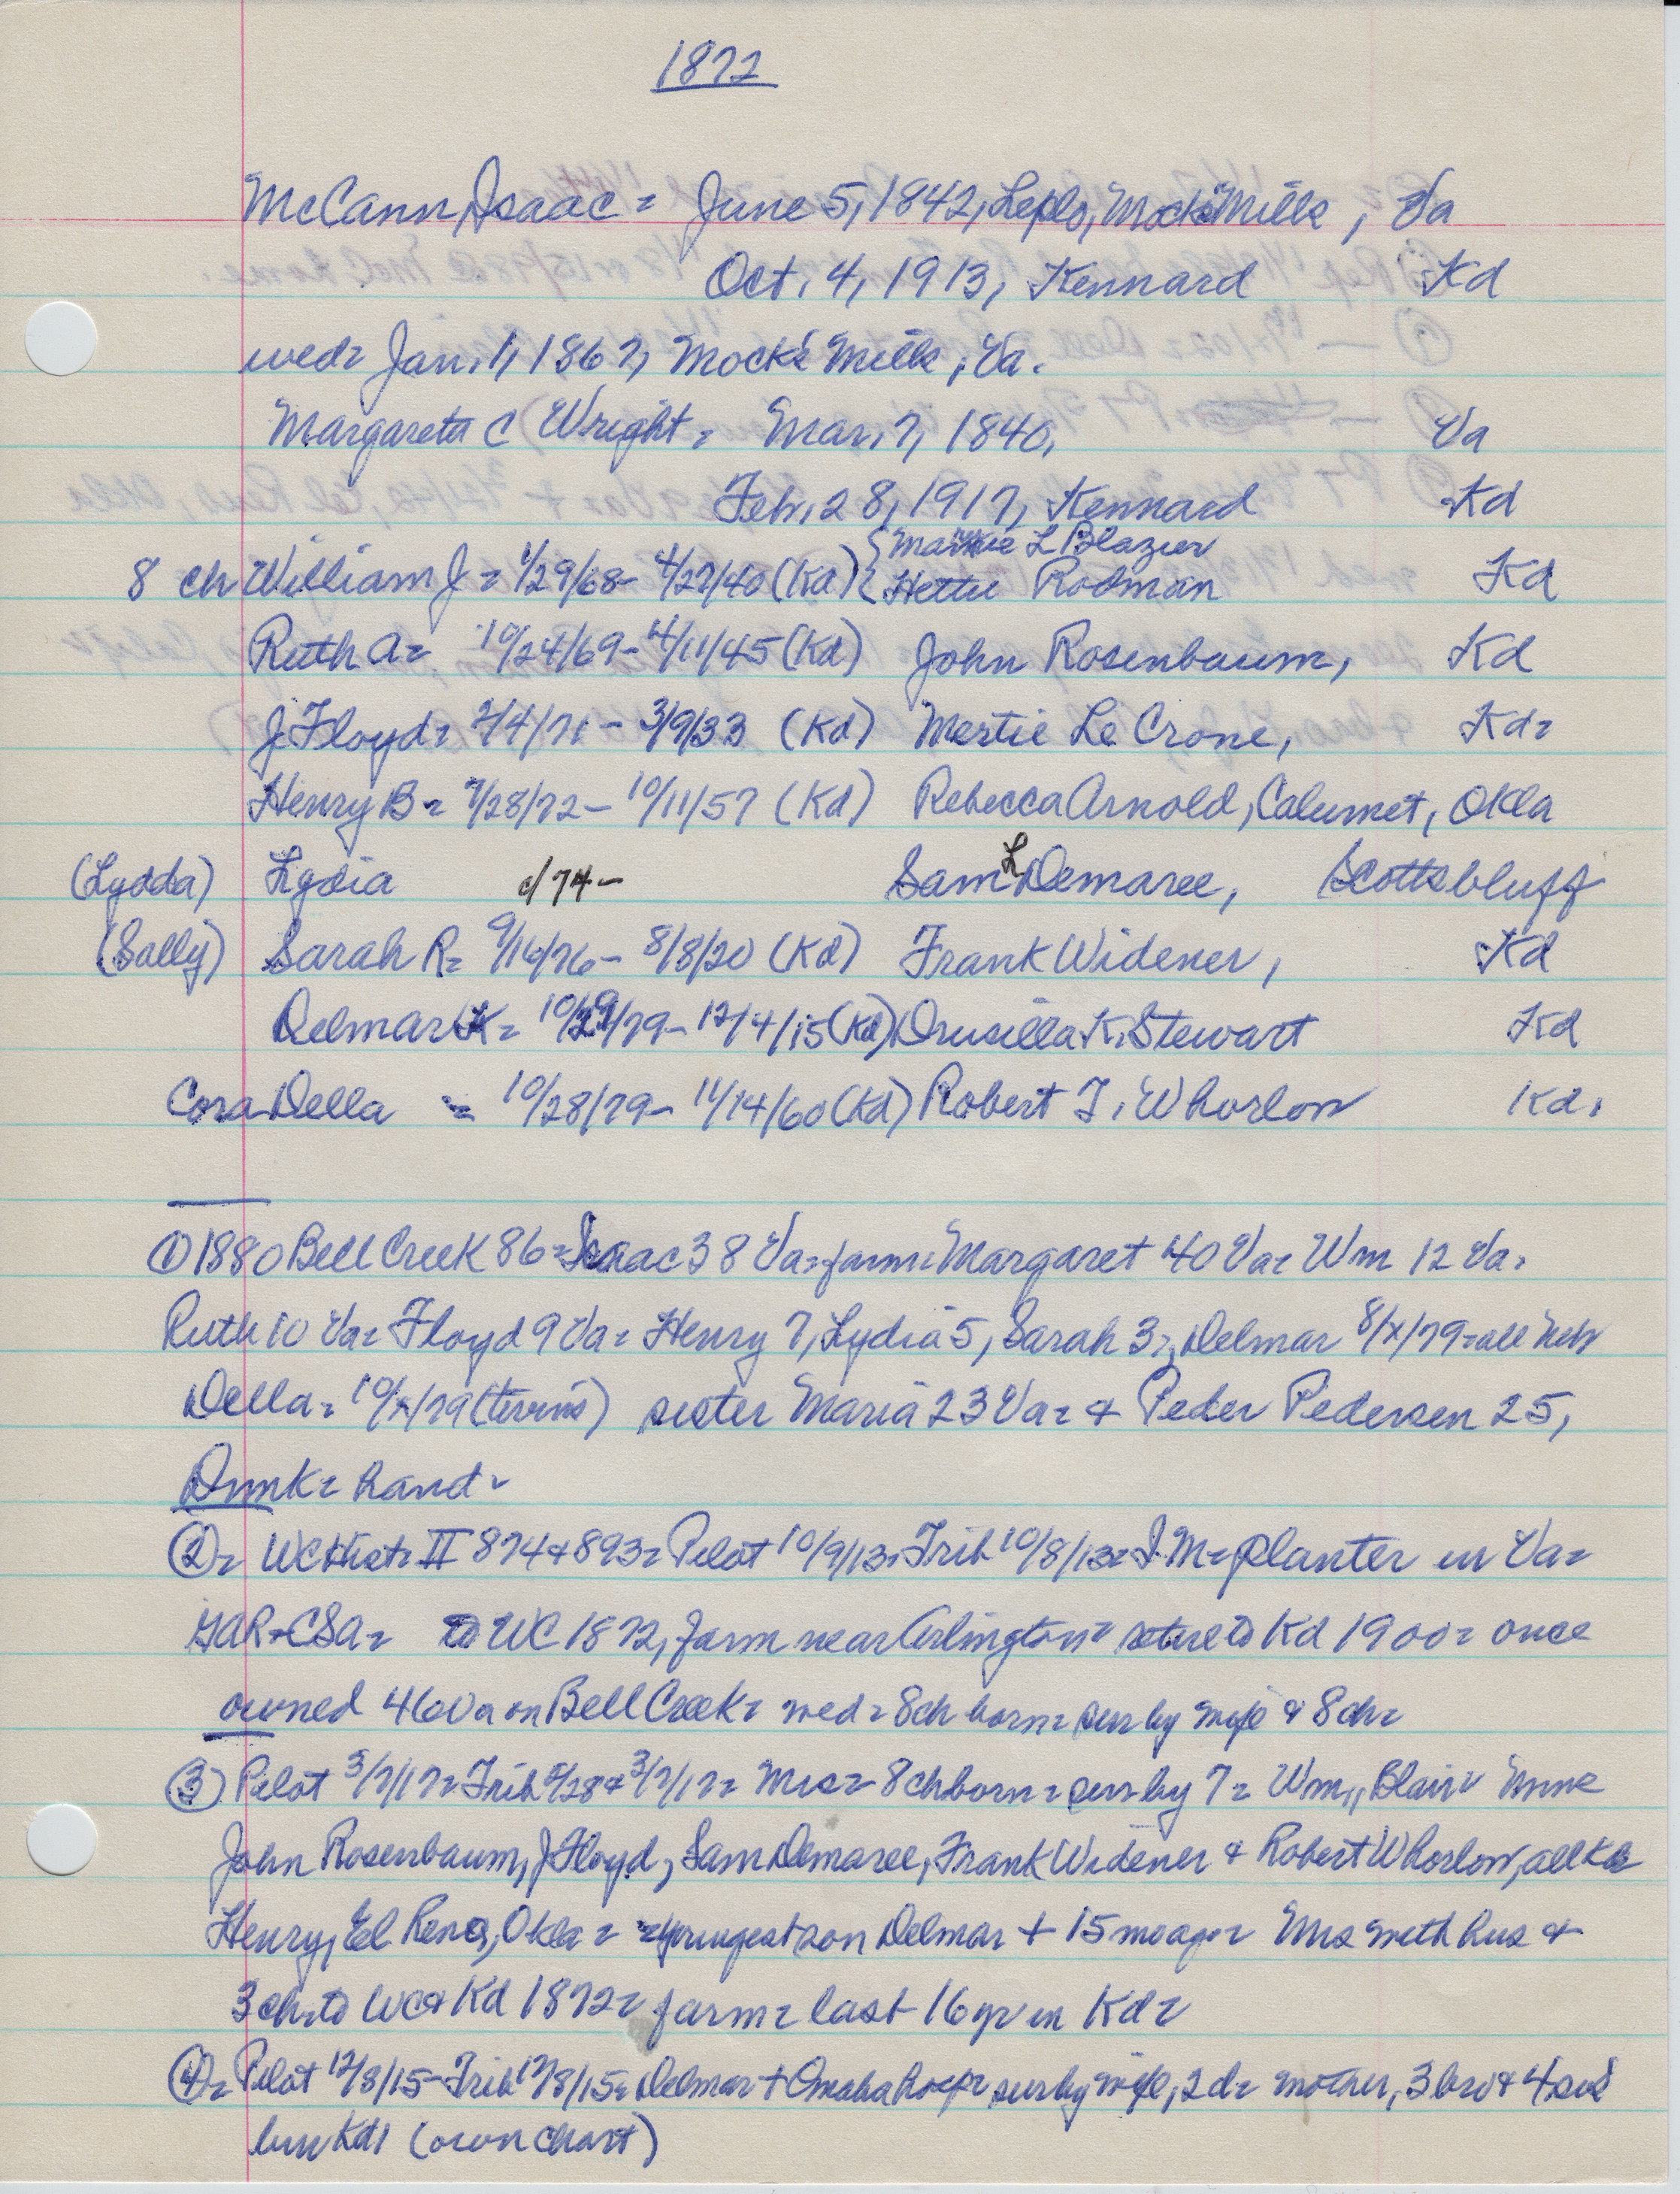 1872
McCann, Isaac = June 5, 1842, Leplo, Mock's Mills, Va
Oct. 4, 1913, Kennard Kd
wed= Jan. 1, 1867, Mock's Mills, Va.
Margaret C Wright = Mar. 7, 1840, Va
Feb. 28, 1917, Kennard Kd
{ Mamie L Blazier
8 ch William J = 1/29/68 - 4/27/40 (Kd) { Hettie Rodman Kd
Ruth A = 10/24/69 - 4/11/45 (Kd) John Rosenbaum, Kd
J. Floyd = 2/4/71 - 3/9/33 (Kd) Mertie Le Crone, Kd=
Henry B = 7/28/72 - 10/11/57 (Kd) Rebecca Arnold, Calumet, Okla
(Lydda) Lydia c/74 - Sam L Demaree, Scottsbluff
(Sally) Sarah R = 9/16/76 - 8/8/20 (Kd) Frank Widener, Kd
Delmar K = 10/29/79 - 12/4/15 (Kd) Drusilla K. Stewart Kd
Cora Della = 10/28/79 - 11/14/60 (Kd) Robert T. Whorlow Kd.
① 1880 Bell Creek 86 = Isaac 38 Va = farm = Margaret 40 Va = Wm 12 Va.
Ruth 10 Va = Floyd 9 Va = Henry 7, Lydia 5, Sarah 3 =, Delmar 8/x/79 = all Neb
Della = 10/x/79 (twins) sister Maria 23 Va = & Peder Pedersen 25,
Dnmk = hand =
② = WC Hist = II 874 & 893 = Pilot 10/9/13 = Trib 10/8/13 = I. M = planter in Va =
GAR - CSA = to WC 1872, farm near Arlington = retire to Kd 1900 = once
owned 460 a on Bell Creek = wed = 8ch born = sur by wife & 8 ch =
③ Pilot 3/7/17 = Trib 2/28 & 3/7/17 = Mrs = 8 ch born = sur by 7 = Wm,, Blair = Mmes
John Rosenbaum, J Floyd, Sam Demaree, Frank Widener & Robert Whorlow, all Kd
Henry, El Reno, Okla = youngest son Delmar + 15 mo ago = Mrs with hus &
3 ch = to WC & Kd 1872 = farm = last 16 yr in Kd =
④ = Pilot 12/8/15 - Trib 12/8/15 = Delmar + Omaha hosp = sur by wife, 2 d = mother, 3 bro & 4 sis
bur Kd, (own chart)